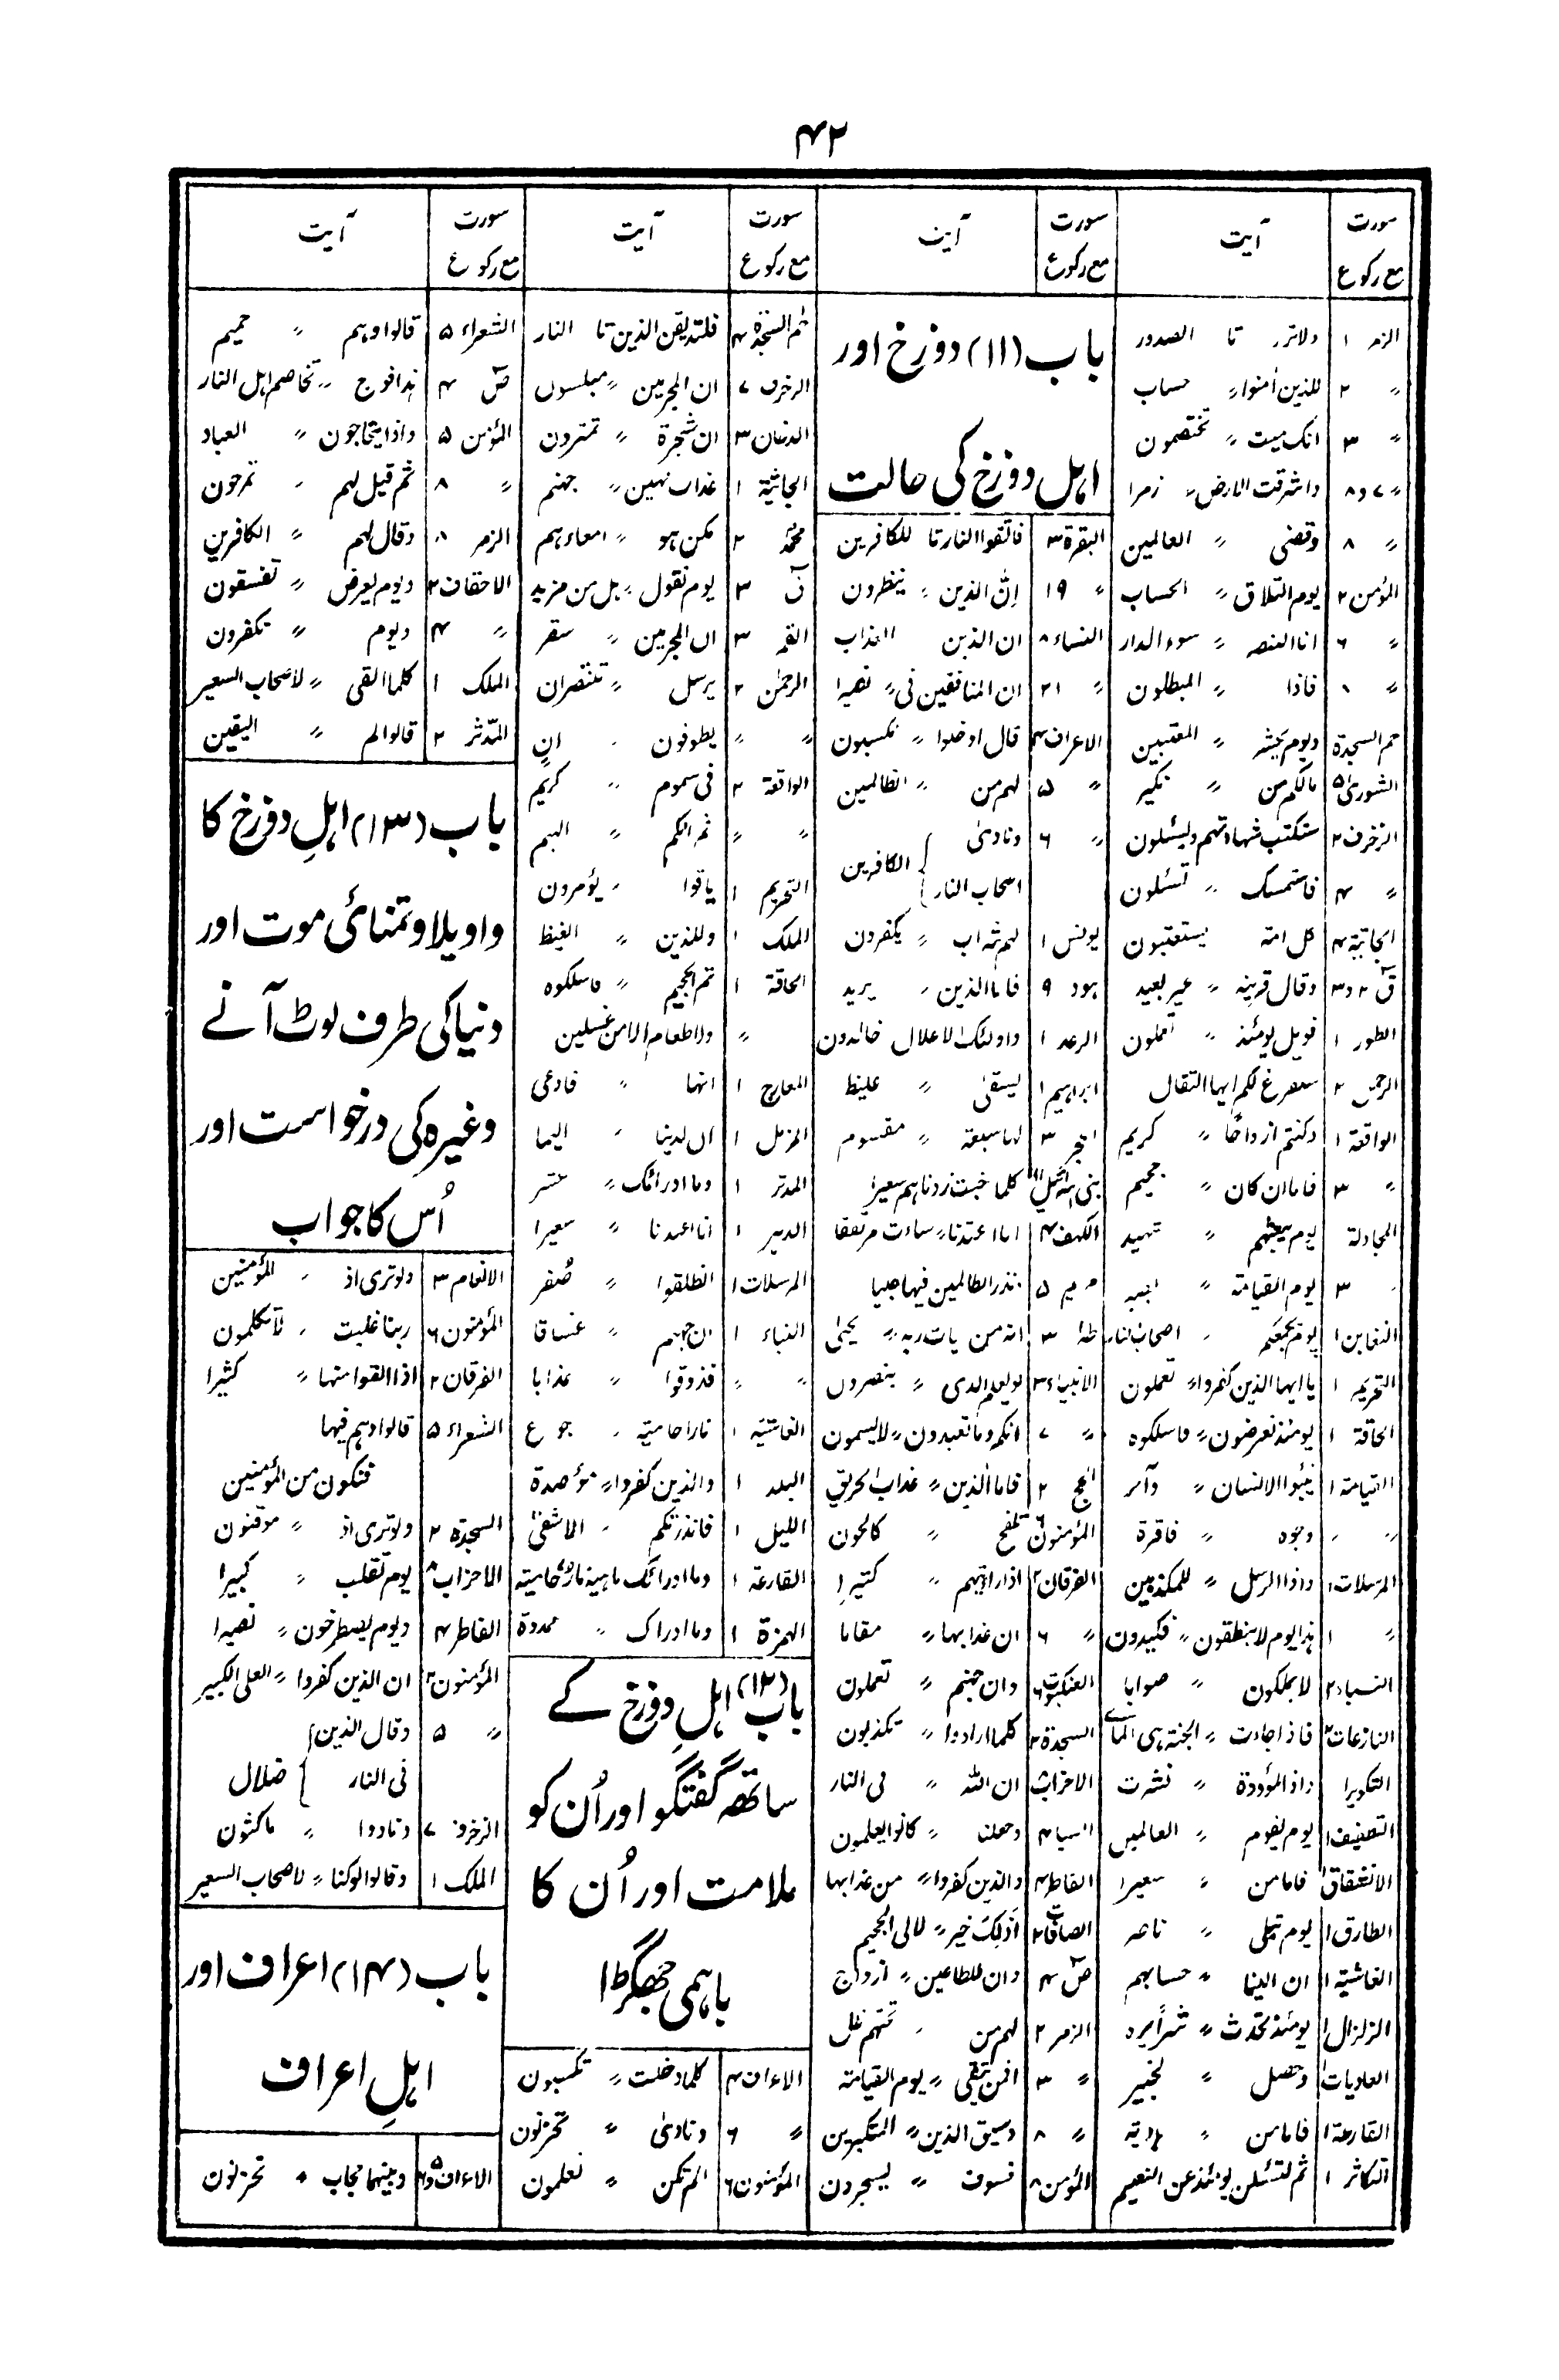 ۴۲
سورت مع رکوع آیت
الزمر ۱ ولاتزر تا الصدور
〃 ۲ للذین اٰمنوا 〃 حساب
〃 ۳ انک میت 〃 تختصمون
〃 ۷ و ۸ واشرقت الارض 〃 زمرا
〃 ۸ وقضی 〃 العالمین
المؤمن ۲ یوم التلاق 〃 الحساب
〃 ۶ انا لننصر 〃 سوء الدار
〃 ۸ فاذا 〃 المبطلون
حم السجدة ویوم یحشر 〃 المعتبین
الشوریٰ ۵ مالکم من 〃 نکیر
الزخرف ۲ ستکتب شہادتہم ویسئلون
〃 ۴ فاستمسک 〃 تسئلون
الجاثیۃ ۴ کل امۃ یستعتبون
قٓ ۲ و ۳ وقال قرینہ 〃 غیر بعید
الطور ۱ فویل یومئذ 〃 تعملون
الرحمٰن ۲ سنفرغ لکم ایہا الثقال
الواقعۃ ۱ وکنتم ازواجًا 〃 کریم
〃 ۳ فاما ان کان 〃 جحیم
المجادلۃ یوم یبعثہم 〃 شہید
〃 ۳ یوم القیامۃ 〃
التغابن ۱ یوم یجمعکم 〃 اصحاب النار
التحریم ۱ یا ایہا الذین کفروا 〃 تعملون
الحاقۃ ۱ یومئذ تعرضون 〃 فاسلکوہ
القیامۃ ۱ ینبؤا الانسان 〃 وآخر
〃 〃 وجوہ 〃 فاقرۃ
المرسلات ۱ واذا الرسل 〃 للمکذبین
〃 ۱ ہذا یوم لاینطقون 〃 فکیدون
النساء ۲ لایملکون 〃 صوابا
النازعات ۲ فاذا جاءت 〃 الجنۃ ہی الماوے
التکویر ۱ واذا المؤودۃ 〃 نشرت
التطفیف ۱ یوم یقوم 〃 العالمین
الانشقاق ۱ فاما من 〃 سعیرا
الطارق ۱ یوم تبلی 〃 ناصر
الغاشیۃ ۱ ان الینا 〃 حسابہم
الزلزال ۱ یومئذ تحدث 〃 شراً یرہ
العادیات ۱ وحصل 〃 لخبیر
القارعۃ ۱ فاما من 〃 ہاویۃ
التکاثر ۱ ثم لتسئلن یومئذ عن النعیم
سورت مع رکوع آیت
باب (۱۱) دوزخ اور
اہل دوزخ کی حالت
البقرة ۳ فاتقوا النار تا للکافرین
〃 ۱۹ اِنّ الذین 〃 ینظرون
النساء ۸ ان الذین العذاب
〃 ۲۱ ان المنافقین فی 〃 نصیرا
الاعراف ۴ قال ادخلوا 〃 تکسبون
〃 ۵ لہم من 〃 الظالمین
〃 ۶ ونادیٰ
اصحاب النار } الکافرین
یونس ۱ لہم شراب 〃 یکفرون
ہود ۹ فاما الذین 〃 یرید
الرعد ۱ واولئک الاغلال خالدون
ابراہیم ۱ یسقیٰ 〃 غلیظ
الحجر ۳ لہا سبعۃ 〃 مقسوم
بنی اسرائیل ۱۱ کلما خبت زدناہم سعیرا
الکہف ۴ انا اعتدنا 〃 ساءت مرتفقا
مریم ۵ نذر الظالمین فیہا جثیا
طہٰ ۳ انہ من یات ربہ 〃 یحییٰ
الانبیاء ۳ لو یعلم الذی 〃 ینصرون
〃 ۷ انکم وما تعبدون 〃 لایسمعون
الحج ۲ فاما الذین 〃 عذاب الحریق
المؤمنون ۶ تلفح 〃 کالحون
الفرقان ۲ اذا راتہم 〃 کثیرا
〃 ۶ ان عذابہا 〃 مقاما
العنکبوت ۶ وان جہنم 〃 تعملون
السجدة ۲ کلما ارادوا 〃 تکذبون
الاحزاب ان اللہ 〃 فی النار
السبا ۴ وجعلنا 〃 کانوا یعلمون
الفاطر ۴ والذین کفروا 〃 من عذابہا
الصافات ۲ اَذٰلِکَ خیر 〃 لالی الجحیم
صٓ ۴ وان للطاغین 〃 ازواج
الزمر ۲ لہم من 〃 تحتہم ظلل
〃 ۳ افمن یتقی 〃 یوم القیامۃ
〃 ۸ وسیق الذین 〃 المتکبرین
المؤمن ۸ فسوف 〃 یسجرون
سورت مع رکوع آیت
حٰم السجدة ۴ فلنذیقن الذین تا النار
الزخرف ۷ ان المجرمین 〃 مبلسون
الدخان ۳ ان شجرة 〃 تمترون
الجاثیۃ ۱ عذاب مہین 〃 جہنم
محمدؐ ۲ کمن ہو 〃 امعاءہم
قٓ ۳ یوم نقول 〃 ہل من مزید
القمر ۳ ان المجرمین 〃 سقر
الرحمٰن ۲ یرسل 〃 تنتصران
〃 〃 یطوفون 〃 اٰنٍ
الواقعۃ ۲ فی سموم 〃 کریم
〃 〃 ثم انکم 〃 الہیم
التحریم ۱ یا قوا 〃 یؤمرون
الملک ۱ وللذین 〃 الغیظ
الحاقۃ ۱ ثم الجحیم 〃 فاسلکوہ
〃 ولا طعام الا من غسلین
المعارج ۱ انہا 〃 فاوعی
المزمل ۱ ان لدینا 〃 الیما
المدثر ۱ وما ادرائک 〃 عشر
الدہر ۱ انا اعتدنا 〃 سعیرا
المرسلات ۱ انطلقوا 〃 صُفر
النباء ۱ ان جہنم 〃 غساقا
〃 〃 فذوقوا 〃 عذابا
الغاشیۃ ۱ نارا حامیۃ 〃 جوع
البلد ۱ والذین کفروا 〃 مؤصدة
اللیل ۱ فانذرتکم 〃 الاشقیٰ
القارعۃ ۱ وما ادرائک ماہیۃ نارٌ حامیۃ
الہمزة ۱ وما ادراک 〃 ممددة
باب (۱۲) اہلِ دوزخ کے
ساتھ گفتگو اور اُن کو
ملامت اور اُن کا
باہمی جھگڑا
الاعراف ۴ کلما دخلت 〃 تکسبون
〃 ۶ ونادیٰ 〃 تحزنون
المؤمنون ۶ الم تکن 〃 تعلمون
سورت مع رکوع آیت
الشعراء ۵ قالوا وہم 〃 حمیم
صٓ ۴ ہذا فوج 〃 تخاصم اہل النار
المؤمن ۵ واذ یتحاجون 〃 العباد
〃 ۸ ثم قیل لہم 〃 تمرحون
الزمر ۸ وقال لہم 〃 الکافرین
الاحقاف ۲ ویوم یعرض 〃 تفسقون
〃 ۴ ویوم 〃 تکفرون
الملک ۱ کلما القی 〃 لاصحاب السعیر
المدّثر ۲ قالوا لم 〃 الیقین
باب (۱۳) اہلِ دوزخ کا
واویلا وتمنائی موت اور
دنیا کی طرف لوٹ آنے
وغیرہ کی درخواست اور
اُس کا جواب
الانعام ۳ ولوتری اذ 〃 المؤمنین
المؤمنون ۶ ربنا غلبت 〃 لاتکلمون
الفرقان ۲ اذا القوا منہا 〃 کثیرا
الشعراء ۵ قالوا وہم فیہا
فنکون من المؤمنین
السجدة ۲ ولوتری اذ 〃 موقنون
الاحزاب ۸ یوم تقلب 〃 کبیرا
الفاطر ۴ ویوم یصطرخون 〃 نصیرا
المؤمنون ۲ ان الذین کفروا 〃 العلی الکبیر
〃 ۵ وقال الذین
فی النار } ضلال
الزخرف ۷ ونادوا 〃 ماکثون
الملک ۱ وقالوا لوکنا 〃 لاصحاب السعیر
باب (۱۴) اعراف اور
اہلِ اعراف
الاعراف ۵ و ۶ وبینہما حجاب 〃 تحزنون